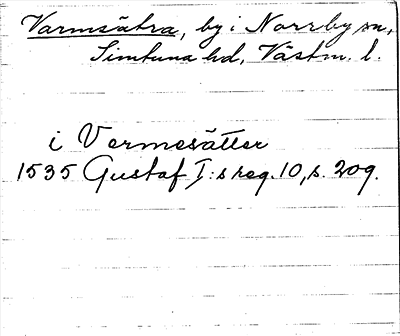 Varmsätra, by i Norrby sn,
Simtuna hd, Västm. l.
i Vermesätter
1535 Gustaf I:s reg. 10, s. 209.